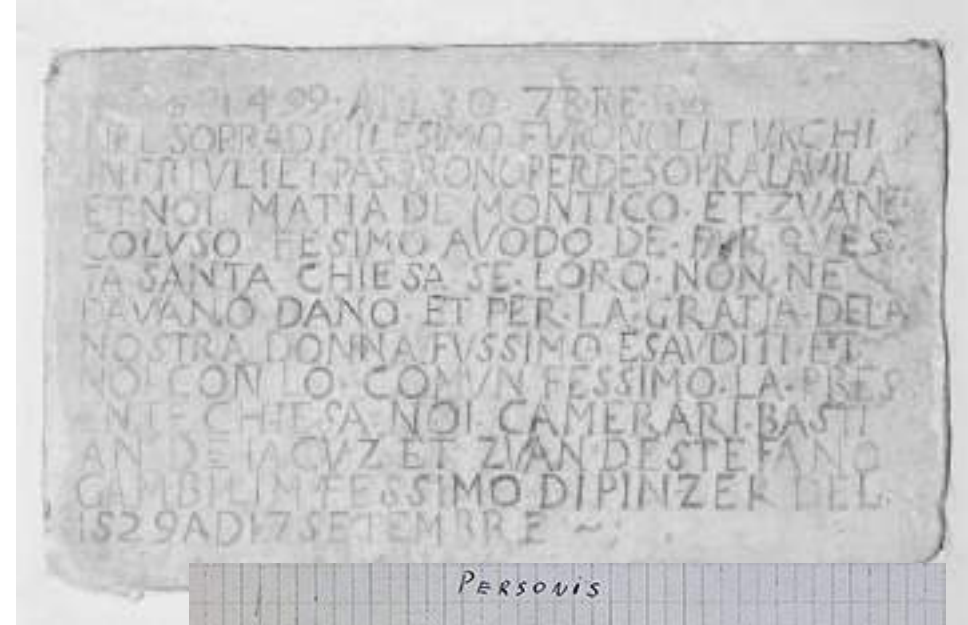 1499 · AD · 30 · 7BRE
NEL SOPRAD MILESIMO FVRONO LI TVRCHI
IN FRIVLI ET PASSORONO PER DE SOPRA LA VILA
ET NOI MATIA DE MONTICO · ET · ZVANE
COLVSO FESIMO AVODO DE · FAR QVES
TA SANTA CHIESA SE · LORO · NON · NE
DAVANO DANO ET PER · LA · GRATIA · DELA
NOSTRA DONNA FVSSIMO ESAVDITI · ET ·
NOI CON LO · COMVN FESSIMO · LA · PRES
ENTE CHIESA NOI CAMERARI · BASTI
AN DE IACVZ ET ZVAN DE STEFANO
GAMBILIM FESSIMO DIPINZER DEL
1529 AD 17 SETEMBRE ~
PERSONIS